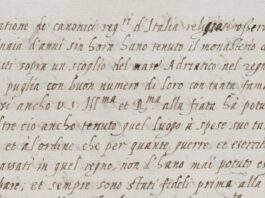 atione de canonici reg.ri d'Italia religiosi osser
inaia d'anni sin hora hano tenuto il monasterio d
iti sopra un scoglio del mare Adriatico nel regn
puglia con buon numero di loro con tanta fam
ri ancho v. S. Ill.ma et R.ma alla fiata ha potut
tre cio ancho tenuto quel luoco à spese sue ta
et à l'ordine che per quante guerre, et eserciti
assati in quel regno, non l'hano mai potuto es
bare; et sempre sono stati fedeli prima alla